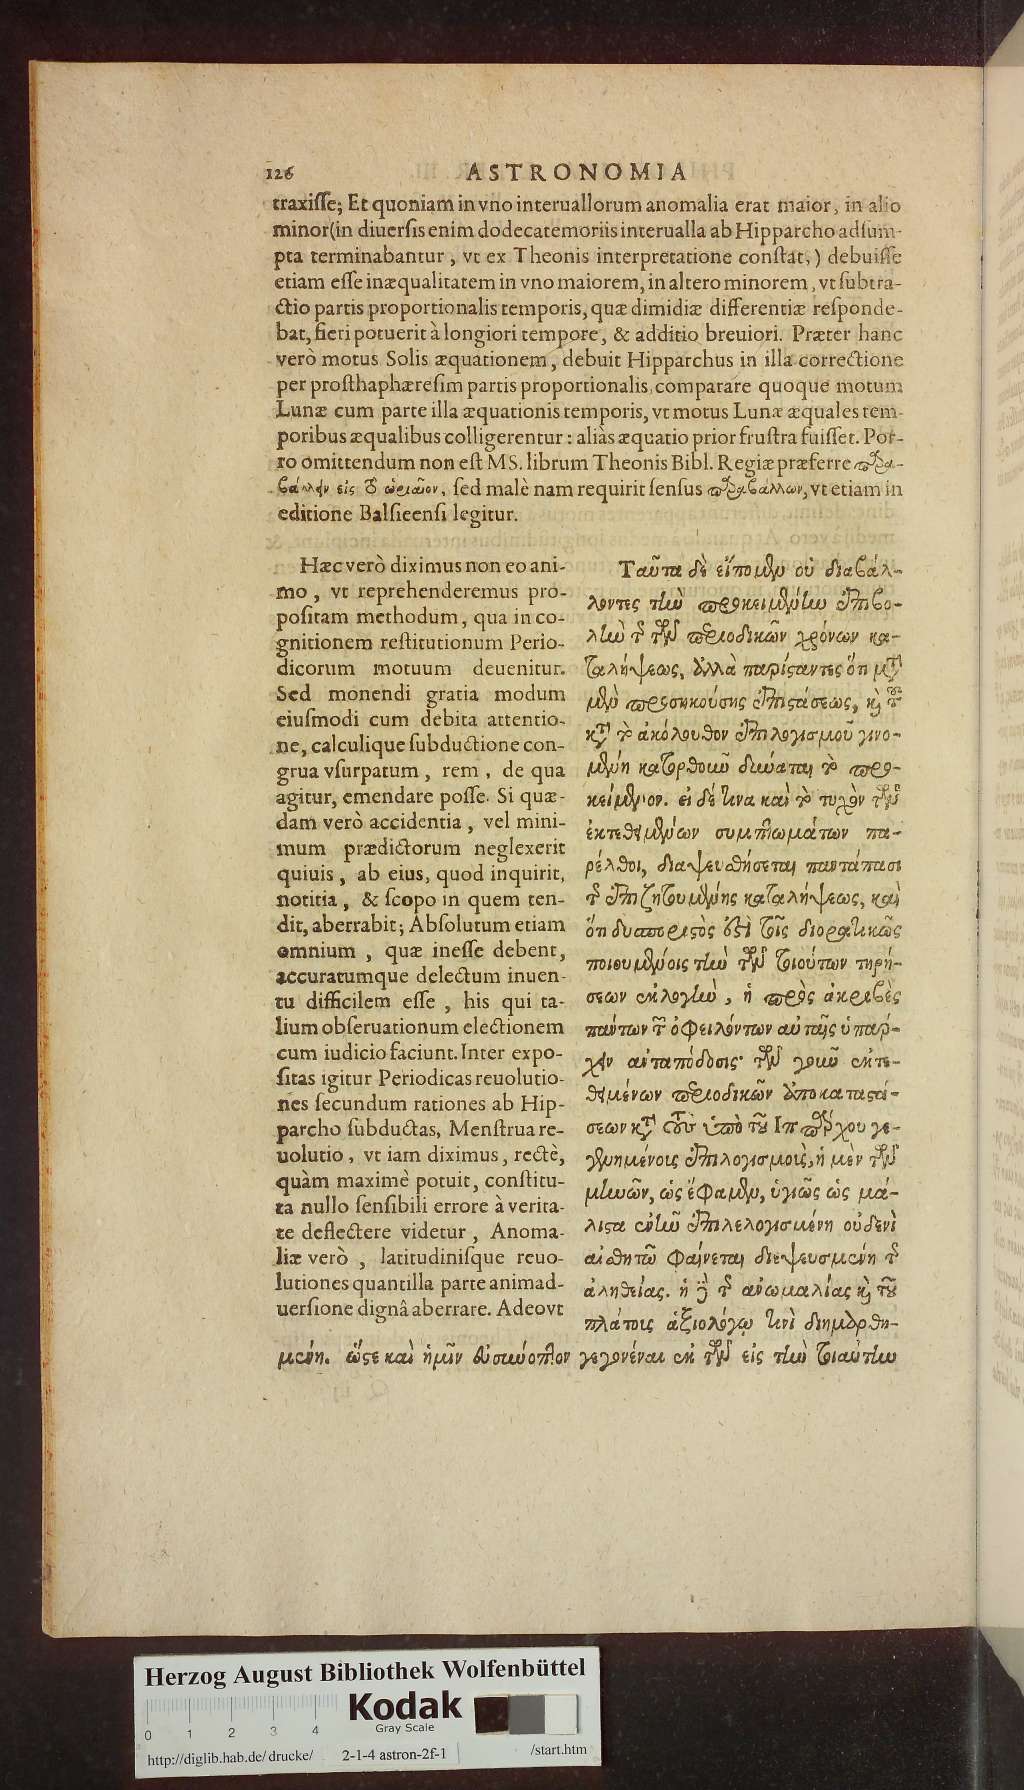 126 ASTRONOMIA
traxiſſe; Et quoniam in vno interuallorum anomalia erat maior, in alio
minor (in diuerſis enim dodecatemoriis interualla ab Hipparcho adſum-
pta terminabantur, vt ex Theonis interpretatione conſtat,) debuiſſe
etiam eſſe inæqualitatem in vno maiorem, in altero minorem, vt ſubtra-
ctio partis proportionalis temporis, quæ dimidiæ differentiæ reſponde-
bat, fieri potuerit à longiori tempore, & additio breuiori. Præter hanc
verò motus Solis æquationem, debuit Hipparchus in illa correctione
per proſthaphæreſim partis proportionalis, comparare quoque motum
Lunæ cum parte illa æquationis temporis, vt motus Lunæ æquales tem-
poribus æqualibus colligerentur: alias æquatio prior fruſtra fuiſſet. Por-
ro omittendum non eſt MS. librum Theonis Bibl. Regiæ præferre παρα-
βάλλην εἰς τὸ ὡριαῖον, ſed malè nam requirit ſenſus παραβάλλων, vt etiam in
editione Balſieenſi legitur.
Hæc verò diximus non eo ani-
mo, vt reprehenderemus pro-
poſitam methodum, qua in co-
gnitionem reſtitutionum Perio-
dicorum motuum deuenitur.
Sed monendi gratia modum
eiuſmodi cum debita attentio-
ne, calculique ſubductione con-
grua vſurpatum, rem, de qua
agitur, emendare poſſe. Si quæ-
dam verò accidentia, vel mini-
mum prædictorum neglexerit
quiuis, ab eius, quod inquirit,
notitia, & ſcopo in quem ten-
dit, aberrabit; Abſolutum etiam
omnium, quæ ineſſe debent,
accuratumque delectum inuen-
tu difficilem eſſe, his qui ta-
lium obſeruationum electionem
cum iudicio faciunt. Inter expo-
ſitas igitur Periodicas reuolutio-
nes ſecundum rationes ab Hip-
parcho ſubductas, Menſtrua re-
uolutio, vt iam diximus, rectè,
quàm maximè potuit, conſtitu-
ta nullo ſenſibili errore à verita-
te deflectere videtur, Anoma-
liæ verò, latitudiniſque reuo-
lutiones quantilla parte animad-
uerſione dignâ aberrare. Adeovt
Ταῦτα δὲ εἴπομεν οὐ διαβάλ-
λοντες τὴν προκειμένην ἐπιβο-
λὴν τῆς τῶν περιοδικῶν χρόνων κα-
ταλήψεως, ἀλλὰ παρίσαντες ὅτι μετὰ
μὲν προσηκούσης ἐπιστάσεως, καὶ τοῦ
κατὰ τὸ ἀκόλουθον ἐπιλογισμοῦ γινο-
μένη κατορθοῦν δύναται τὸ προ-
κείμενον. εἰ δέ τινα καὶ τὸ τυχὸν τῶν
ἐκτεθειμένων συμπτωμάτων πα-
ρέλθοι, διαψευσθήσεται παντάπασι
τῆς ἐπιζητουμένης καταλήψεως, καὶ
ὅτι δυσπόριστός ἐστὶ τοῖς διορατικῶς
ποιουμένοις τὴν τῶν τοιούτων τηρή-
σεων ἐκλογὴν, ἡ πρὸς ἀκριβὲς
πάντων τῶν ὀφειλόντων αὐταῖς ὑπάρ-
χειν ἀνταπόδοσις· τῶν γοῦν ἐκτε-
θειμένων περιοδικῶν ἀποκαταστά-
σεων κατὰ τοὺς ὑπὸ τοῦ Ιππάρχου γε-
γενημένοις ἐπιλογισμοὺς, ἡ μὲν τῶν
μηνῶν, ὡς ἔφαμεν, ὑγιῶς ὡς μά-
λιστα ἐνῆν ἐπιλελογισμένη οὐδενὶ
αἰσθητῷ φαίνεται διεψευσμένη τῆς
ἀληθείας. ἡ δὲ τῆς ἀνωμαλίας καὶ τοῦ
πλάτοις ἀξιολόγῳ τινὶ διημαρτη-
μένη. ὥστε καὶ ἡμῖν εὐσύνοπτον γεγονέναι ἐκ τῶν εἰς τὴν τοιαύτην
Herzog August Bibliothek Wolfenbüttel
Kodak
Gray Scale
0 1 2 3 4
http://diglib.hab.de/drucke/ 2-1-4 astron-2f-1 /start.htm